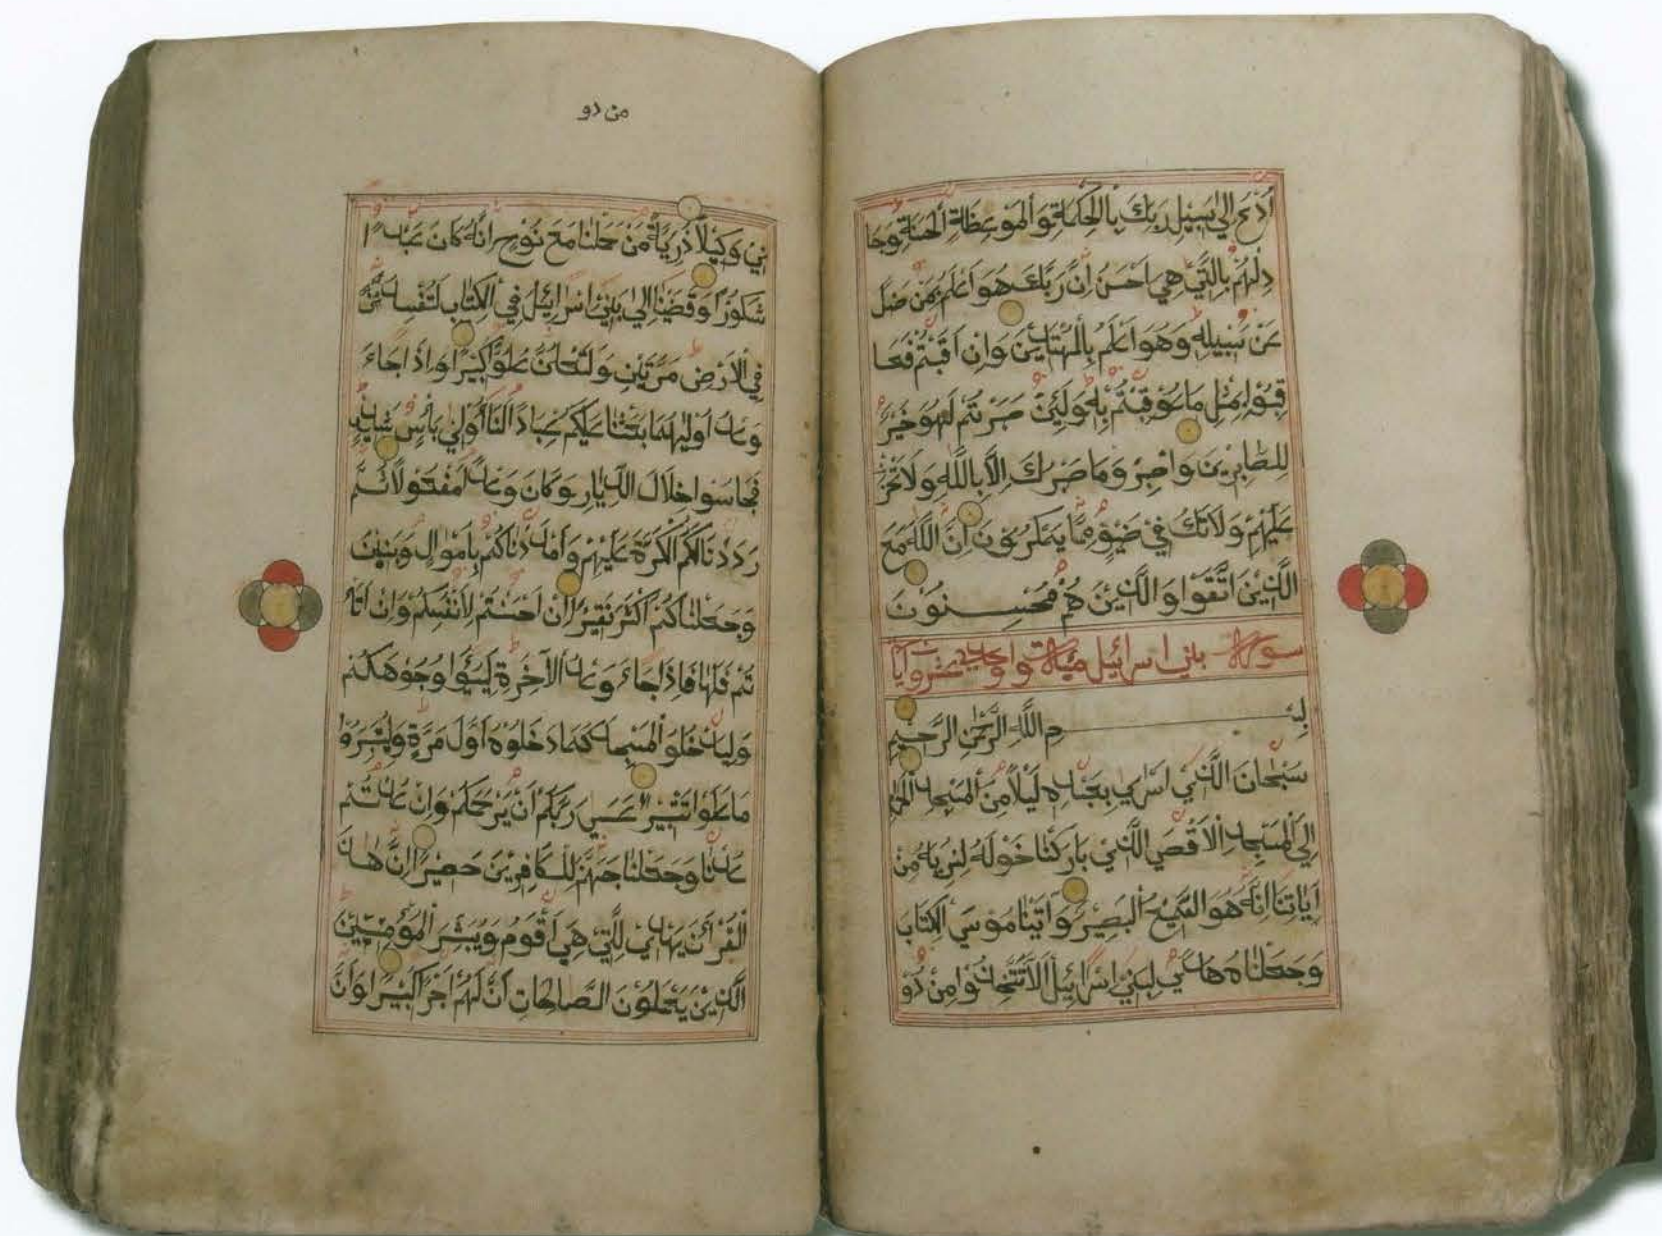 أدع إلى سبيل ربك بالحكمة والموعظة الحسنة وجا
دلهم بالتي هي أحسن إن ربك هو أعلم بمن ضل
عن سبيله وهو أعلم بالمهتدين وإن عاقبتم فعا
قبوا بمثل ما عوقبتم به ولئن صبرتم لهو خير
للصابرين واصبر وما صبرك إلا بالله ولا تحزن
عليهم ولا تك في ضيق مما يمكرون إن الله مع
الذين اتقوا والذين هم محسنون
سورة بني اسرائيل مياة واحدى عشر وايا
بسم الله الرحمن الرحيم
سبحان الذي اسرى بعبده ليلا من المسجد الحرا
إلى المسجد الاقصى الذي باركنا حوله لنريه من
اياتنا انه هو السميع البصير واتينا موسى الكتاب
وجعلناه هدى لبني اسرائيل ألا تتخذوا من دو
من دو
ني وكيلا ذرية من حملنا مع نوح انه كان عبدا
شكورا وقضينا إلى بني اسرائيل في الكتاب لتفسدن
في الارض مرتين ولتعلن علوا كبيرا واذا جاء
وعد اوليهما بعثنا عليكم عبادا لنا أولي بأس شديد
فجاسوا خلال الديار وكان وعدا مفعولا ثم
رددنا لكم الكرة عليهم وأمددناكم بأموال وبنين
وجعلناكم اكثر نفيرا ان احسنتم لأنفسكم وان اسأ
تم فلها فاذا جاء وعد الآخرة ليسؤا وجوهكم
وليدخلوا المسجد كما دخلوه اول مرة وليتبروا
ما علوا تتبيرا عسى ربكم أن يرحمكم وان عدتم
عدنا وجعلنا جهنم للكافرين حصيرا ان هذا
القرآن يهدي للتي هي أقوم ويبشر المؤمنين
الذين يعملون الصالحات أن لهم اجرا كبيرا وأن